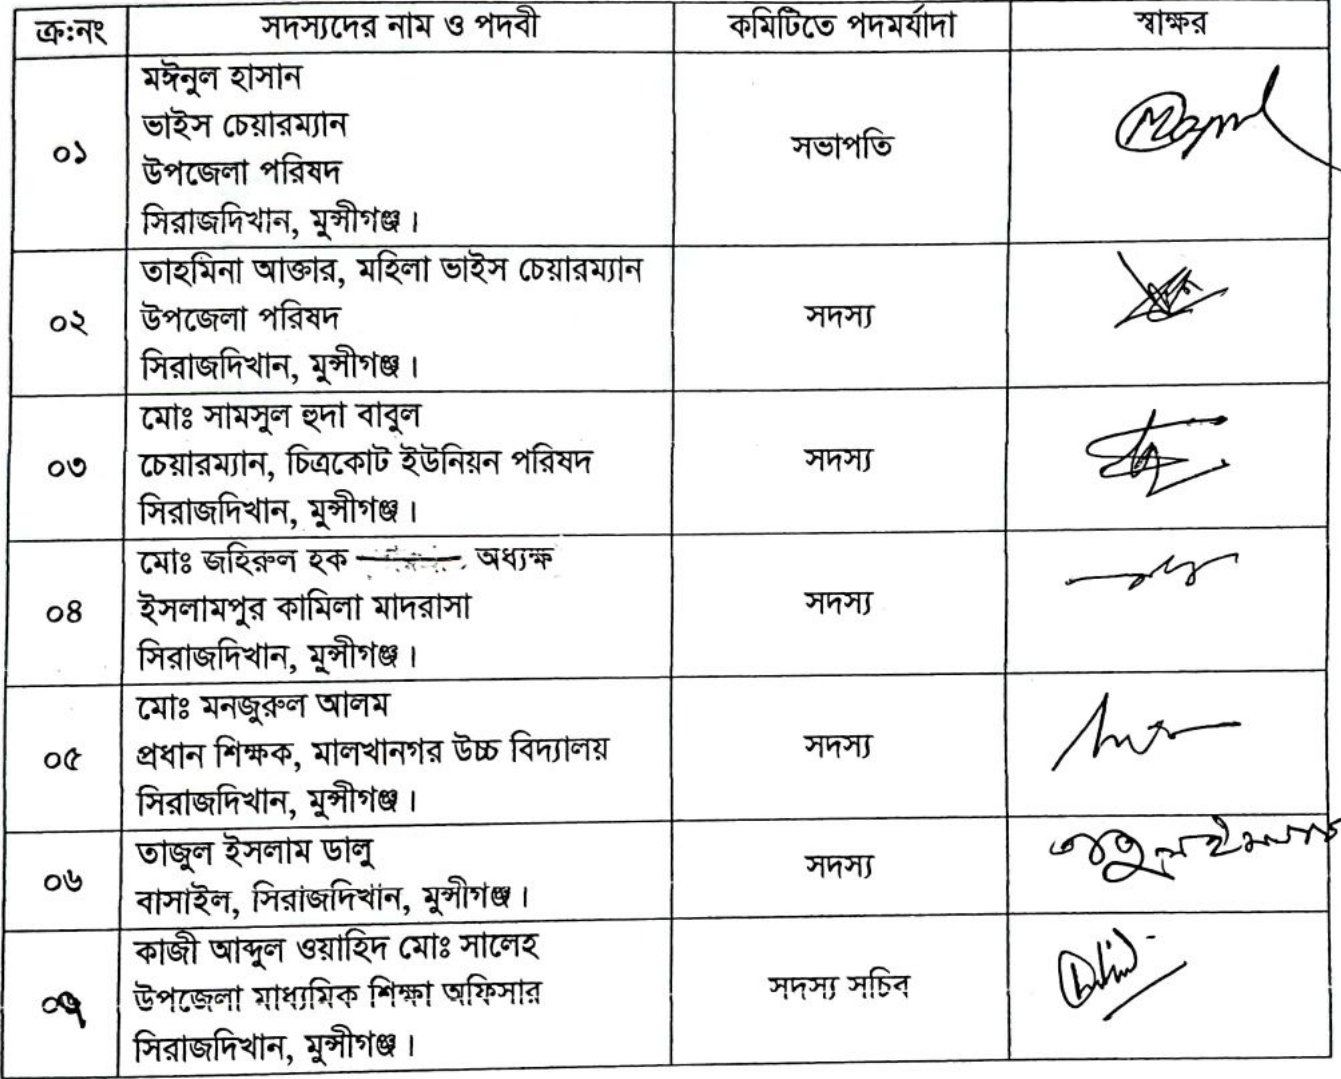 ক্র:নং সদস্যদের নাম ও পদবী কমিটিতে পদমর্যাদা স্বাক্ষর
০১
মঈনুল হাসান
ভাইস চেয়ারম্যান
উপজেলা পরিষদ
সিরাজদিখান, মুন্সীগঞ্জ।
সভাপতি
০২
তাহমিনা আক্তার, মহিলা ভাইস চেয়ারম্যান
উপজেলা পরিষদ
সিরাজদিখান, মুন্সীগঞ্জ।
সদস্য
০৩
মোঃ সামসুল হুদা বাবুল
চেয়ারম্যান, চিত্রকোট ইউনিয়ন পরিষদ
সিরাজদিখান, মুন্সীগঞ্জ।
সদস্য
০৪
মোঃ জহিরুল হক অধ্যক্ষ
ইসলামপুর কামিলা মাদরাসা
সিরাজদিখান, মুন্সীগঞ্জ।
সদস্য
০৫
মোঃ মনজুরুল আলম
প্রধান শিক্ষক, মালখানগর উচ্চ বিদ্যালয়
সিরাজদিখান, মুন্সীগঞ্জ।
সদস্য
০৬
তাজুল ইসলাম ডালু
বাসাইল, সিরাজদিখান, মুন্সীগঞ্জ।
সদস্য
তাজুল ইসলাম
০৭
কাজী আব্দুল ওয়াহিদ মোঃ সালেহ
উপজেলা মাধ্যমিক শিক্ষা অফিসার
সিরাজদিখান, মুন্সীগঞ্জ।
সদস্য সচিব